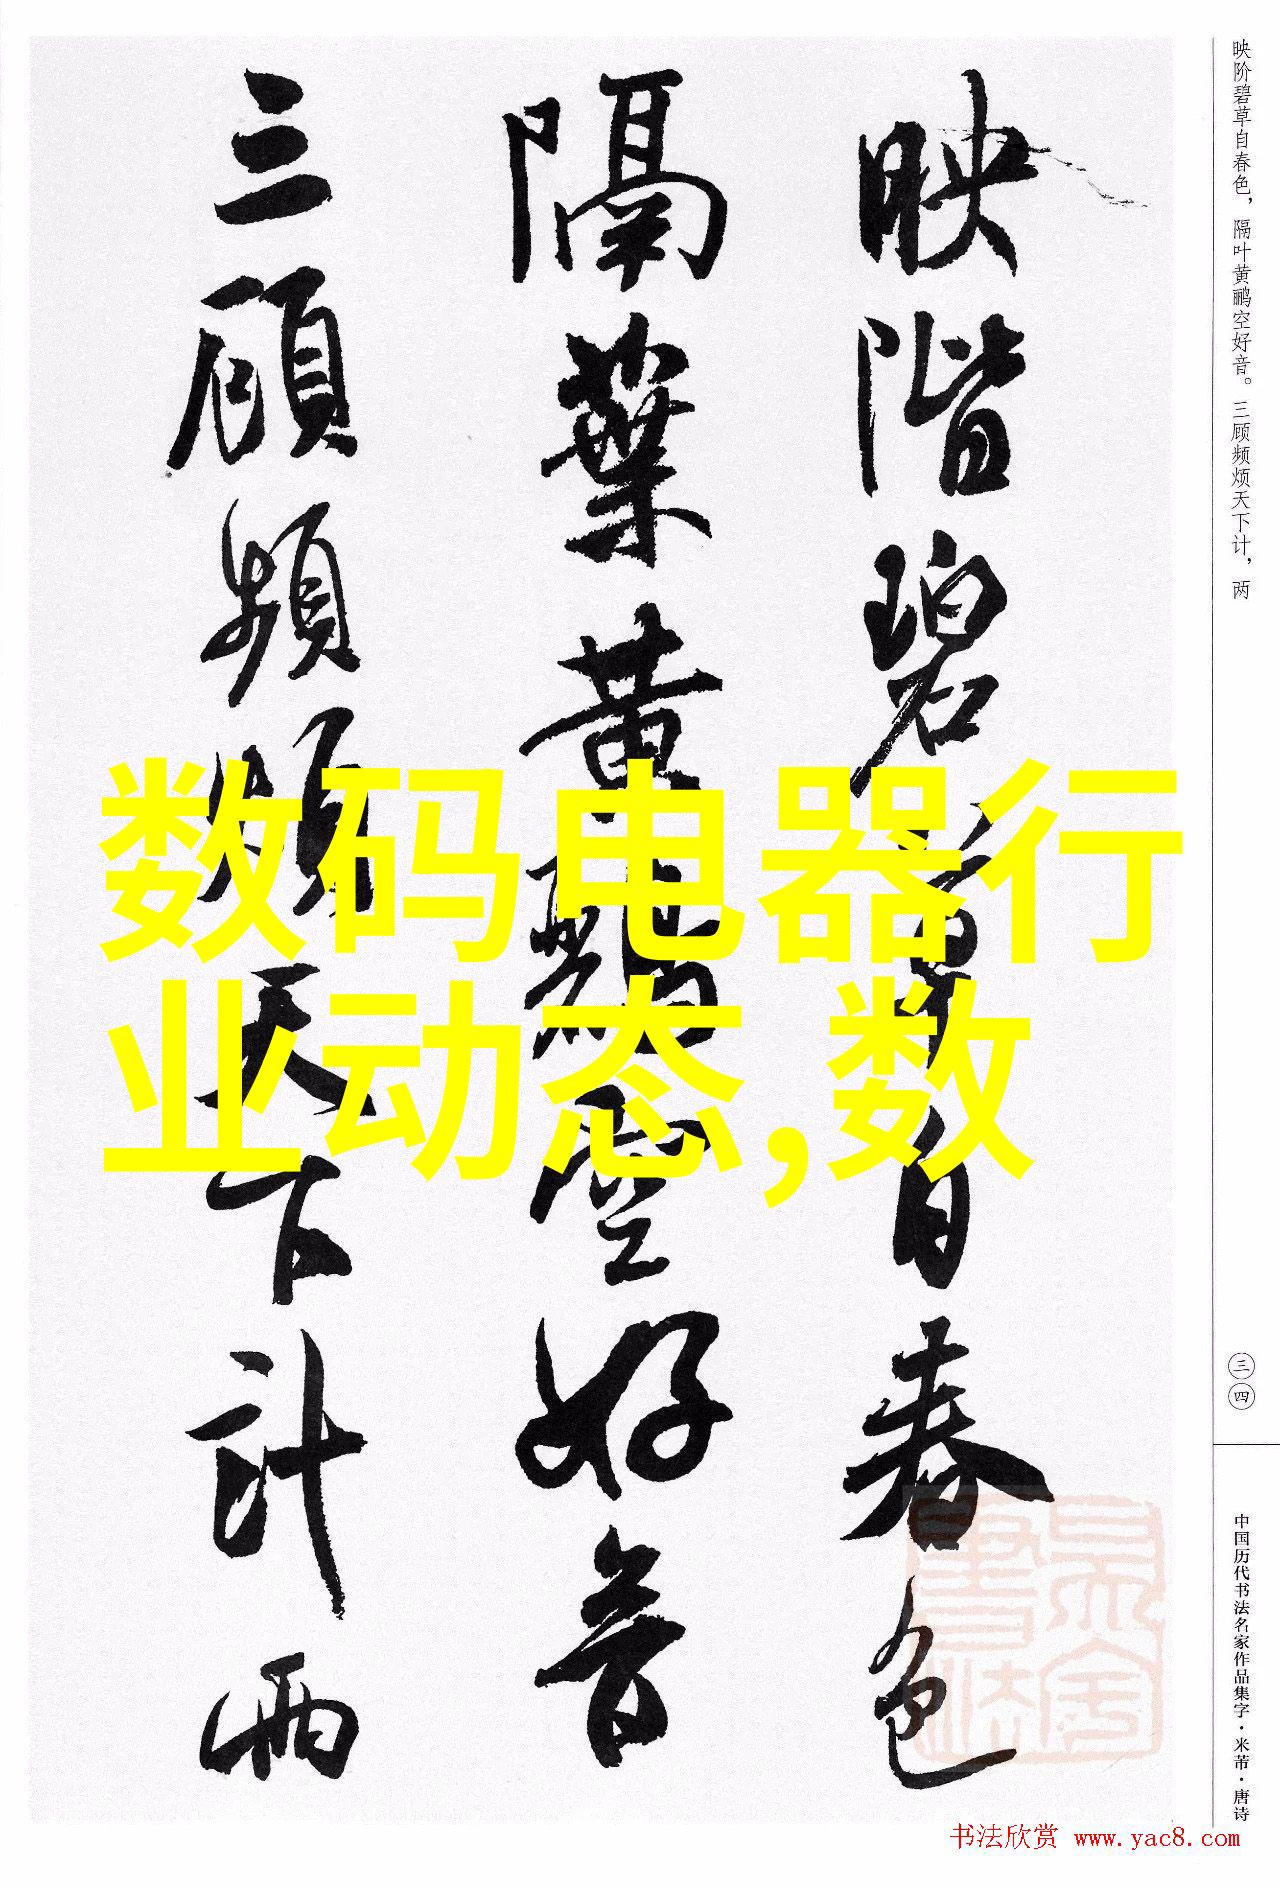 映階碧草自春色
隔葉黄鸝空好音
三顧頻煩天下計兩
数码电器行
业动态,数
映阶碧草自春色，隔叶黄鹂空好音。三顾频烦天下计，两
三四
中国历代书法名家作品集字·米芾·唐诗
书法欣赏 www.yac8.com